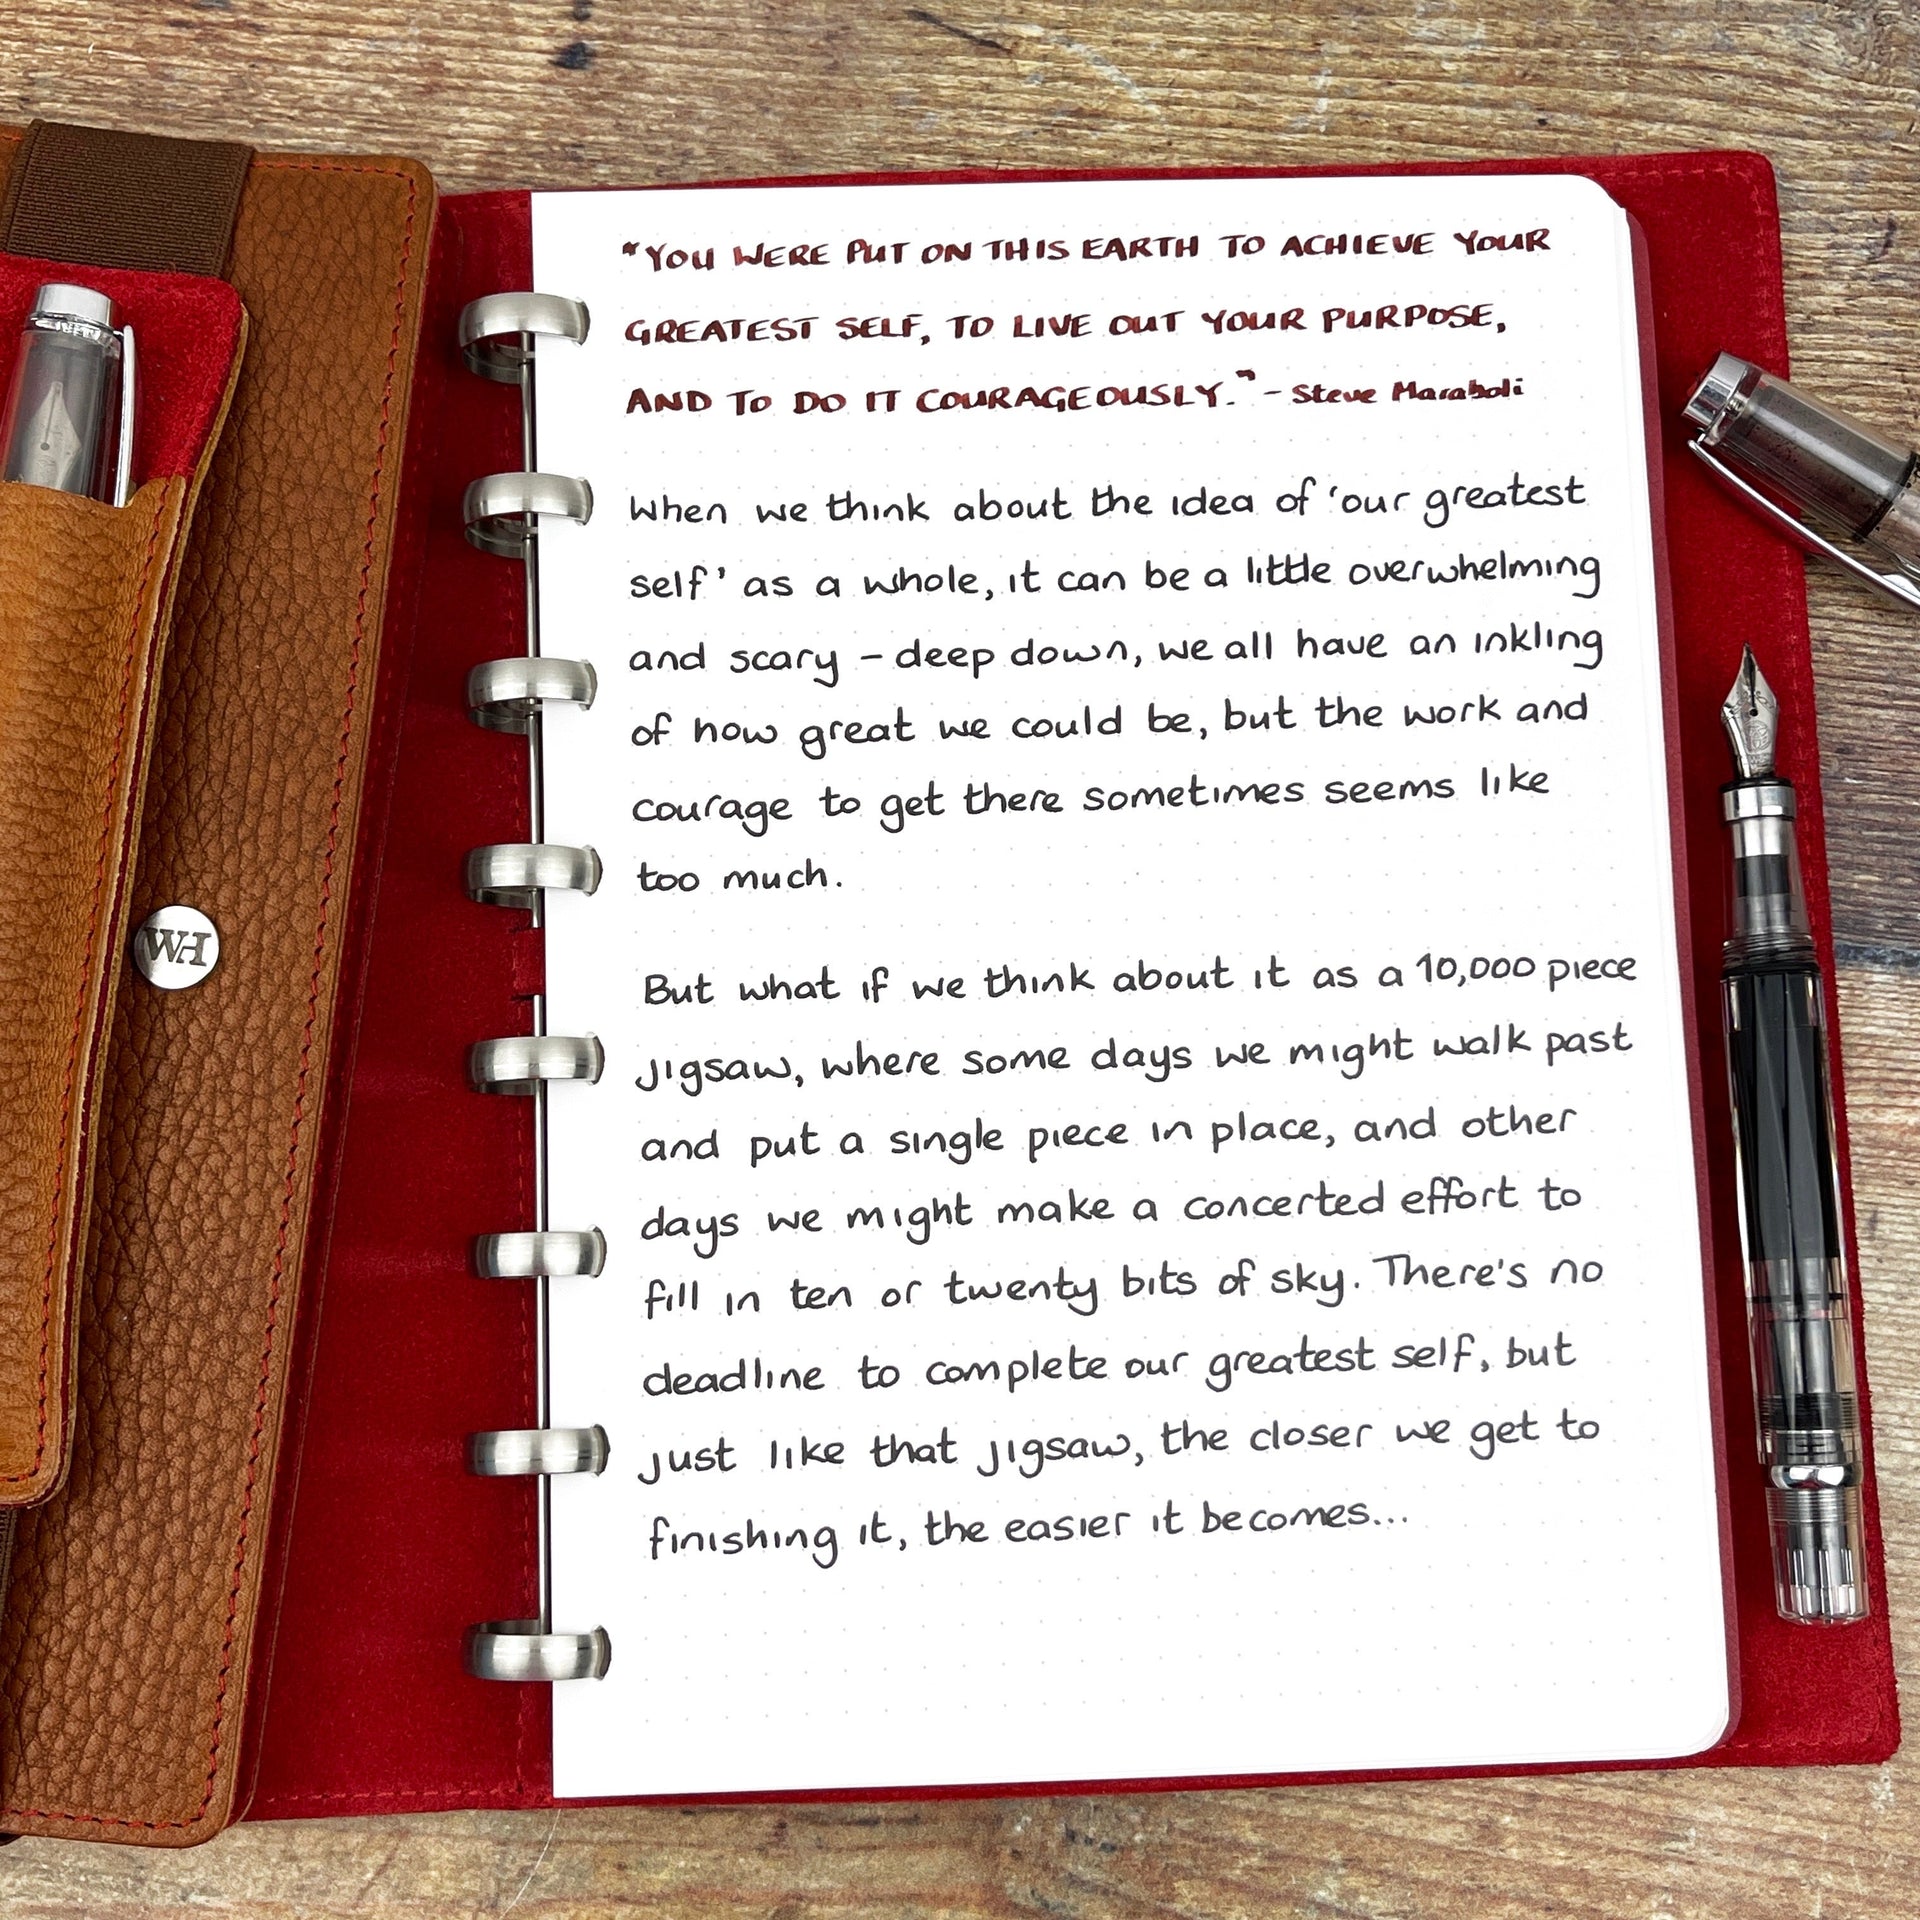 "YOU WERE PUT ON THIS EARTH TO ACHIEVE YOUR
GREATEST SELF, TO LIVE OUT YOUR PURPOSE,
AND TO DO IT COURAGEOUSLY." - Steve Maraboli
When we think about the idea of 'our greatest
self' as a whole, it can be a little overwhelming
and scary - deep down, we all have an inkling
of how great we could be, but the work and
courage to get there sometimes seems like
too much.
But what if we think about it as a 10,000 piece
jigsaw, where some days we might walk past
and put a single piece in place, and other
days we might make a concerted effort to
fill in ten or twenty bits of sky. There's no
deadline to complete our greatest self, but
just like that jigsaw, the closer we get to
finishing it, the easier it becomes...
WH